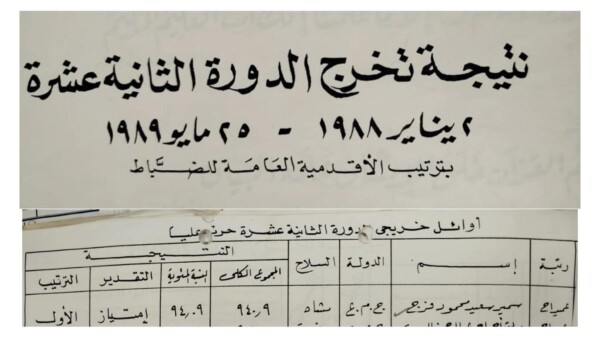 نتيجة تخرج الدورة الثانية عشرة
٢ يناير ١٩٨٨ - ٢٥ مايو ١٩٨٩
بترتيب الأقدمية العامة للضباط
أوائل خريجى دورة الثانية عشرة حرب عليا
رتبة إسم الدولة السلاح النتيجة
المجموع الكلى النسبة المئوية التقدير الترتيب
عميد أح سمير سعيد محمود فرج ج.م.ع مشاه ٩٤٠.٩ ٩٤.٠٩ إمتياز الأول